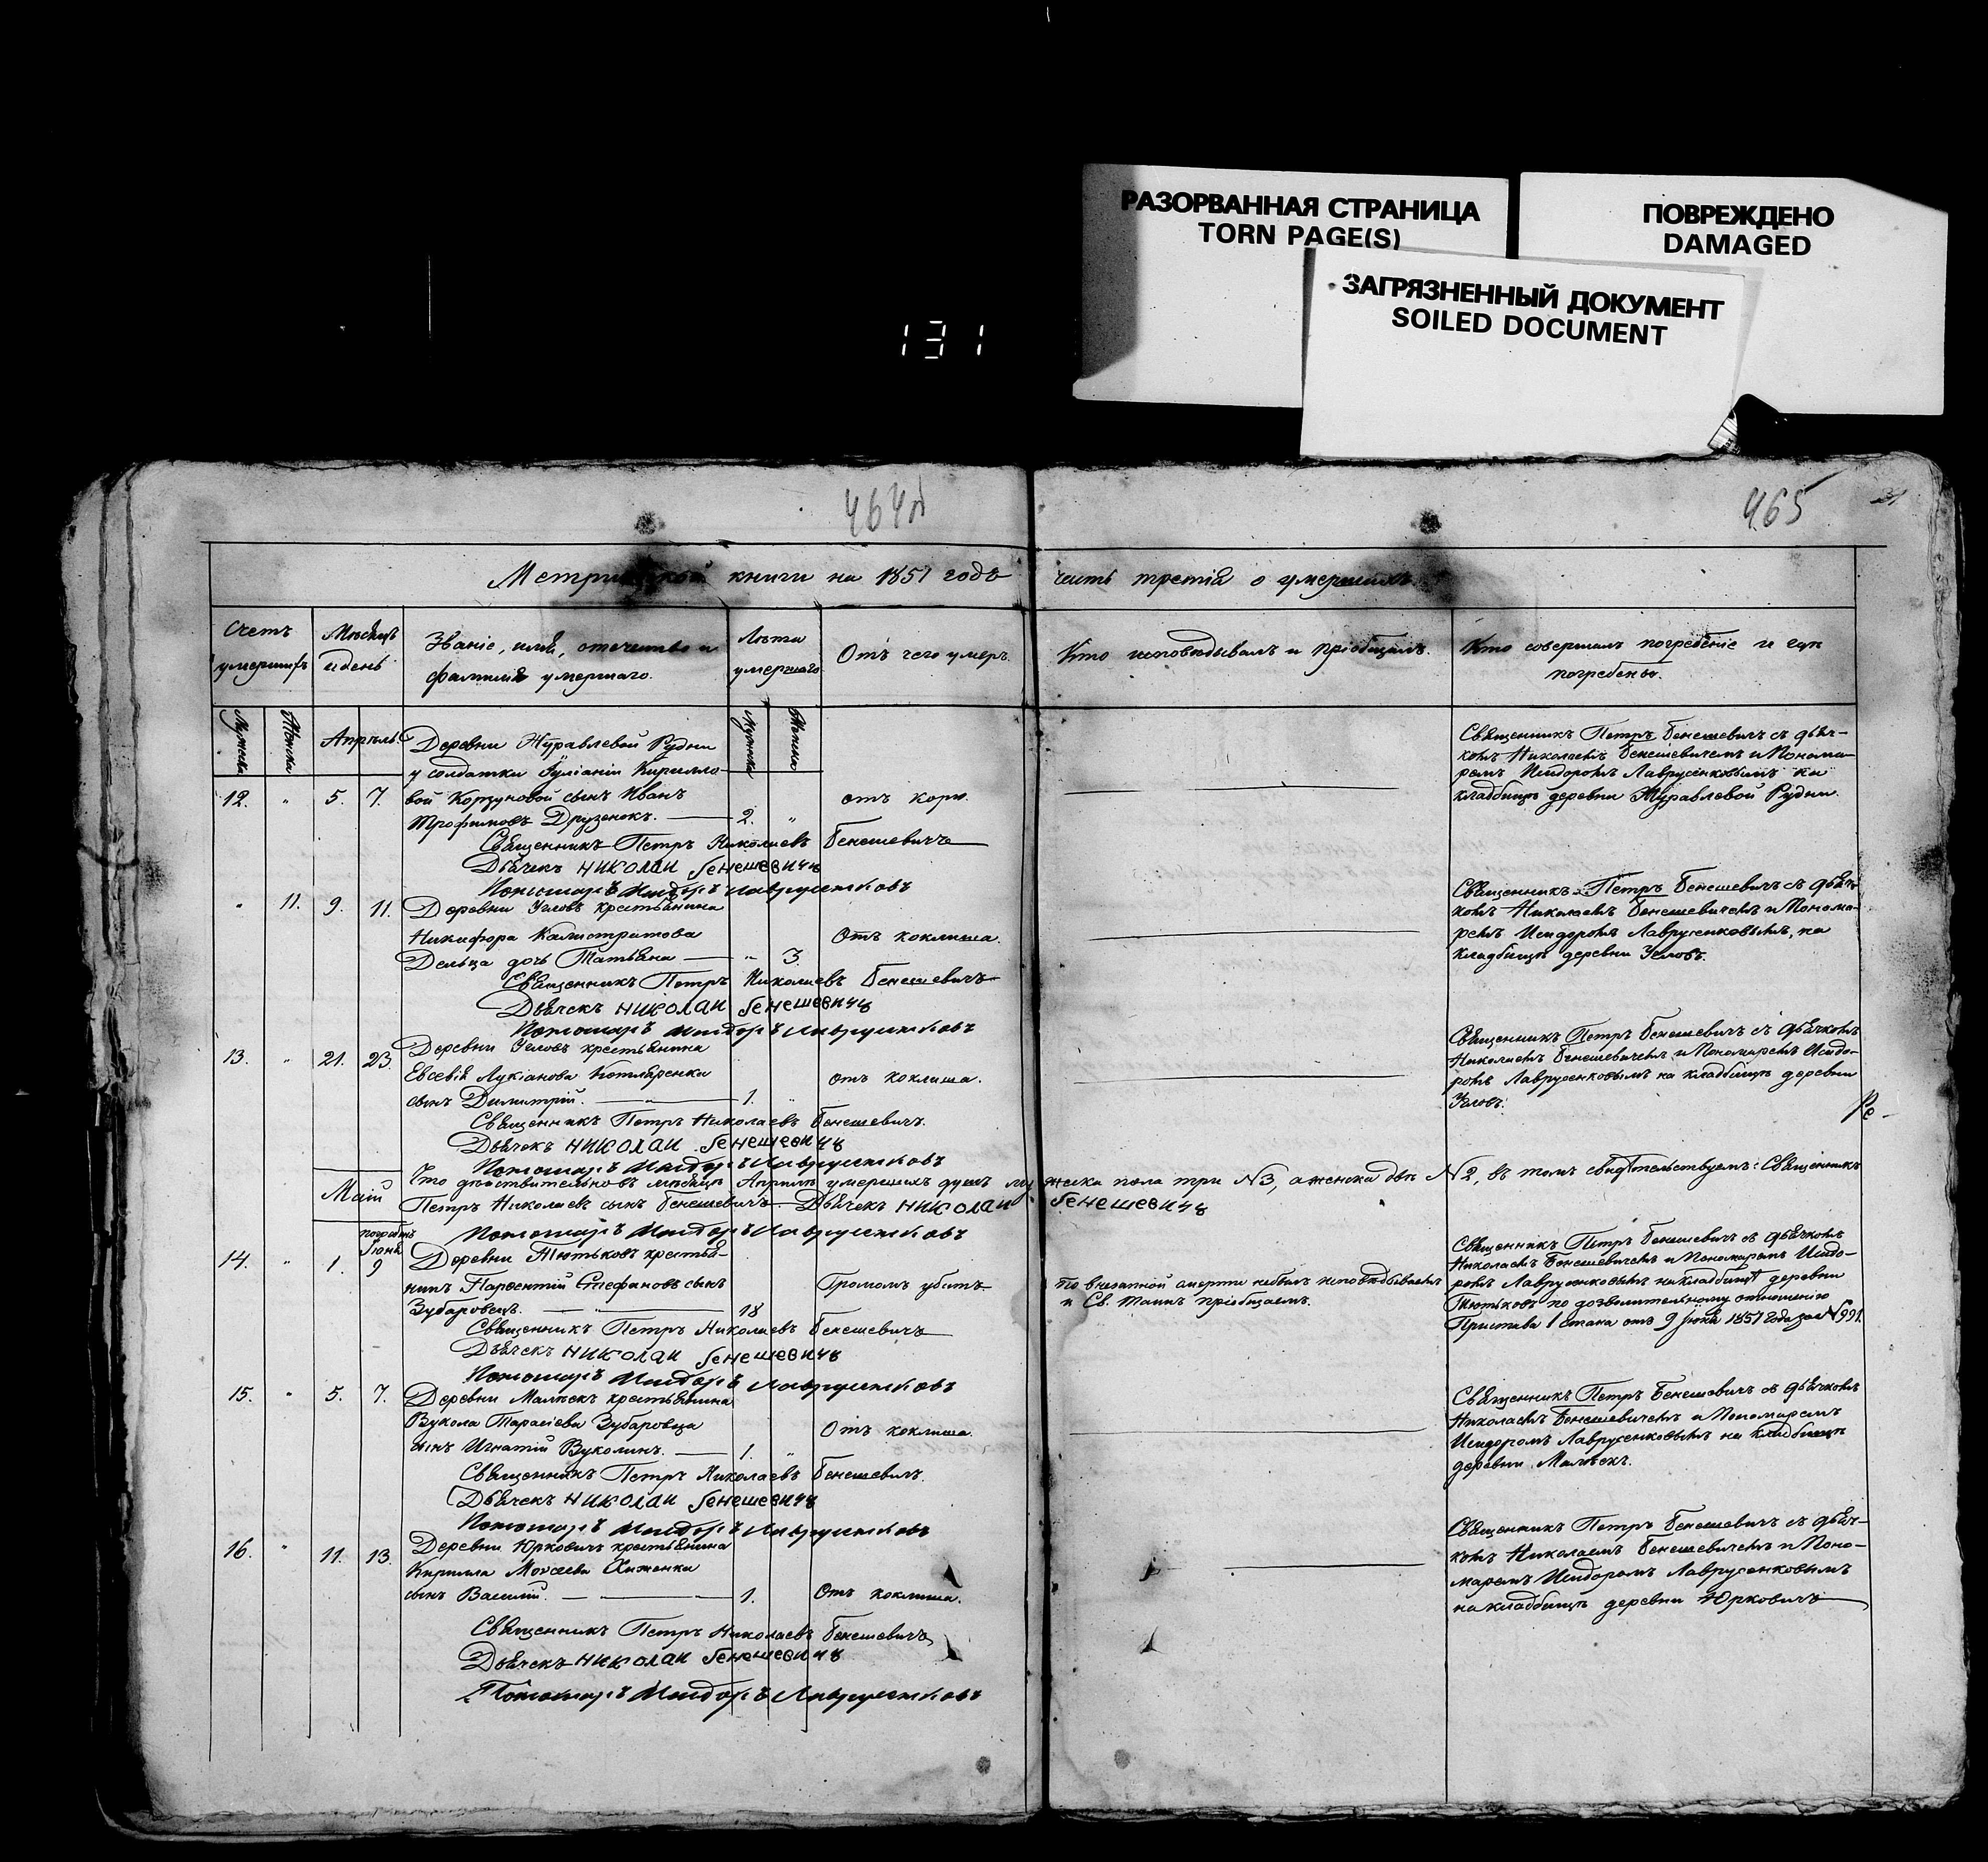 РАЗОРВАННАЯ СТРАНИЦА
TORN PAGE(S)
ПОВРЕЖДЕНО
DAMAGED
ЗАГРЯЗНЕННЫЙ ДОКУМЕНТ
SOILED DOCUMENT
131
464
465
книги на 1851 годъ часть третія о умершихъ
Счетъ умершихъ
Мѣсяцъ и день
Званіе, имя, отечество и фамилія умершаго.
Лѣта умершаго
Отъ чего умеръ.
Кто исповѣдывалъ и пріобщалъ.
Кто совершалъ погребеніе и гдѣ погребены.
Мужеска
Женска
Апрѣль
Мужска
Женска
12. " 5. 7.
Деревни Журавлевой Рудни
у солдатки Іуліаніи Кирилло-
вой Корзуновой сынъ Иванъ
Трофимовъ Друзенокъ. 2. "
отъ кори.
Священникъ Петръ Бенешевичъ съ дьяч-
комъ Николаемъ Бенешевичемъ и Понома-
ремъ Исидоромъ Лаврусенковымъ на
кладбищѣ деревни Журавлевой Рудни.
Священникъ Петръ Николаевъ Бенешевичъ
Дьячекъ Николай Бенешевичъ
Пономарь Исидоръ Лаврусенковъ
" 11. 9. 11.
Деревни Углов крестьянина
Никифора Калистратова
Дельца дочь Татьяна " 3
Отъ коклюша.
Священникъ Петръ Бенешевичъ съ дьяч-
комъ Николаемъ Бенешевичемъ и Понома-
ремъ Исидоромъ Лаврусенковымъ, на
кладбищѣ деревни Угловъ.
Священникъ Петръ Николаевъ Бенешевичъ
Дьячекъ Николай Бенешевичъ
Пономарь Исидоръ Лаврусенковъ
13. " 21. 23.
Деревни Угловъ крестьянина
Евсевія Лукіанова Котляренка
сынъ Димитрій. 1. "
отъ коклюша.
Священникъ Петръ Бенешевичъ съ дьячкомъ
Николаемъ Бенешевичемъ и Пономаремъ Исидо-
ромъ Лаврусенковымъ на кладбищѣ деревни
Угловъ.
Священникъ Петръ Николаевъ Бенешевичъ.
Дьячекъ Николай Бенешевичъ
Пономарь Исидоръ Лаврусенковъ
Что дѣйствительно въ мѣсяцѣ Апрѣлѣ умершихъ душъ мужеска пола три №3, а женска двѣ №2, въ томъ свидѣтельствуемъ: Священникъ
Петръ Николаевъ сынъ Бенешевичъ. Дьячекъ Николай Бенешевичъ
Пономарь Исидоръ Лаврусенковъ
Маій
Іюня
14. " 1. 9
Деревни Тютьковъ крестья-
нинъ Парѳентій Стефановъ сынъ
Зубаровецъ. 18
Громомъ убитъ
По внезапной смерти небылъ исповѣдываемъ
и Св. Таинъ пріобщаемъ.
Священникъ Петръ Бенешевичъ съ дьячкомъ
Николаемъ Бенешевичемъ и Пономаремъ Исидо-
ромъ Лаврусенковымъ на кладбищѣ деревни
Тютьковъ по дозволительному отношенію
Пристава 1 стана отъ 9 Іюня 1851 года за №991.
Священникъ Петръ Николаевъ Бенешевичъ
Дьячекъ Николай Бенешевичъ
Пономарь Исидоръ Лаврусенковъ
15. " 5. 7.
Деревни Малѣекъ крестьянина
Вукола Тарасіева Зубаровца
сынъ Игнатій Вуколинъ. 1. "
Отъ коклюша.
Священникъ Петръ Бенешевичъ съ дьячкомъ
Николаемъ Бенешевичемъ и Пономаремъ
Исидоромъ Лаврусенковымъ на кладбищѣ
деревни Малѣекъ.
Священникъ Петръ Николаевъ Бенешевичъ.
Дьячекъ Николай Бенешевичъ
Пономарь Исидоръ Лаврусенковъ
16. " 11. 13.
Деревни Юрковичъ крестьянина
Кирилла Моисеева Хиженка
сынъ Василій. 1.
Отъ коклюша.
Священникъ Петръ Бенешевичъ съ дьяч-
комъ Николаемъ Бенешевичемъ и Поно-
маремъ Исидоромъ Лаврусенковымъ
на кладбищѣ деревни Юрковичъ
Священникъ Петръ Николаевъ Бенешевичъ
Дьячекъ Николай Бенешевичъ
Пономарь Исидоръ Лаврусенковъ